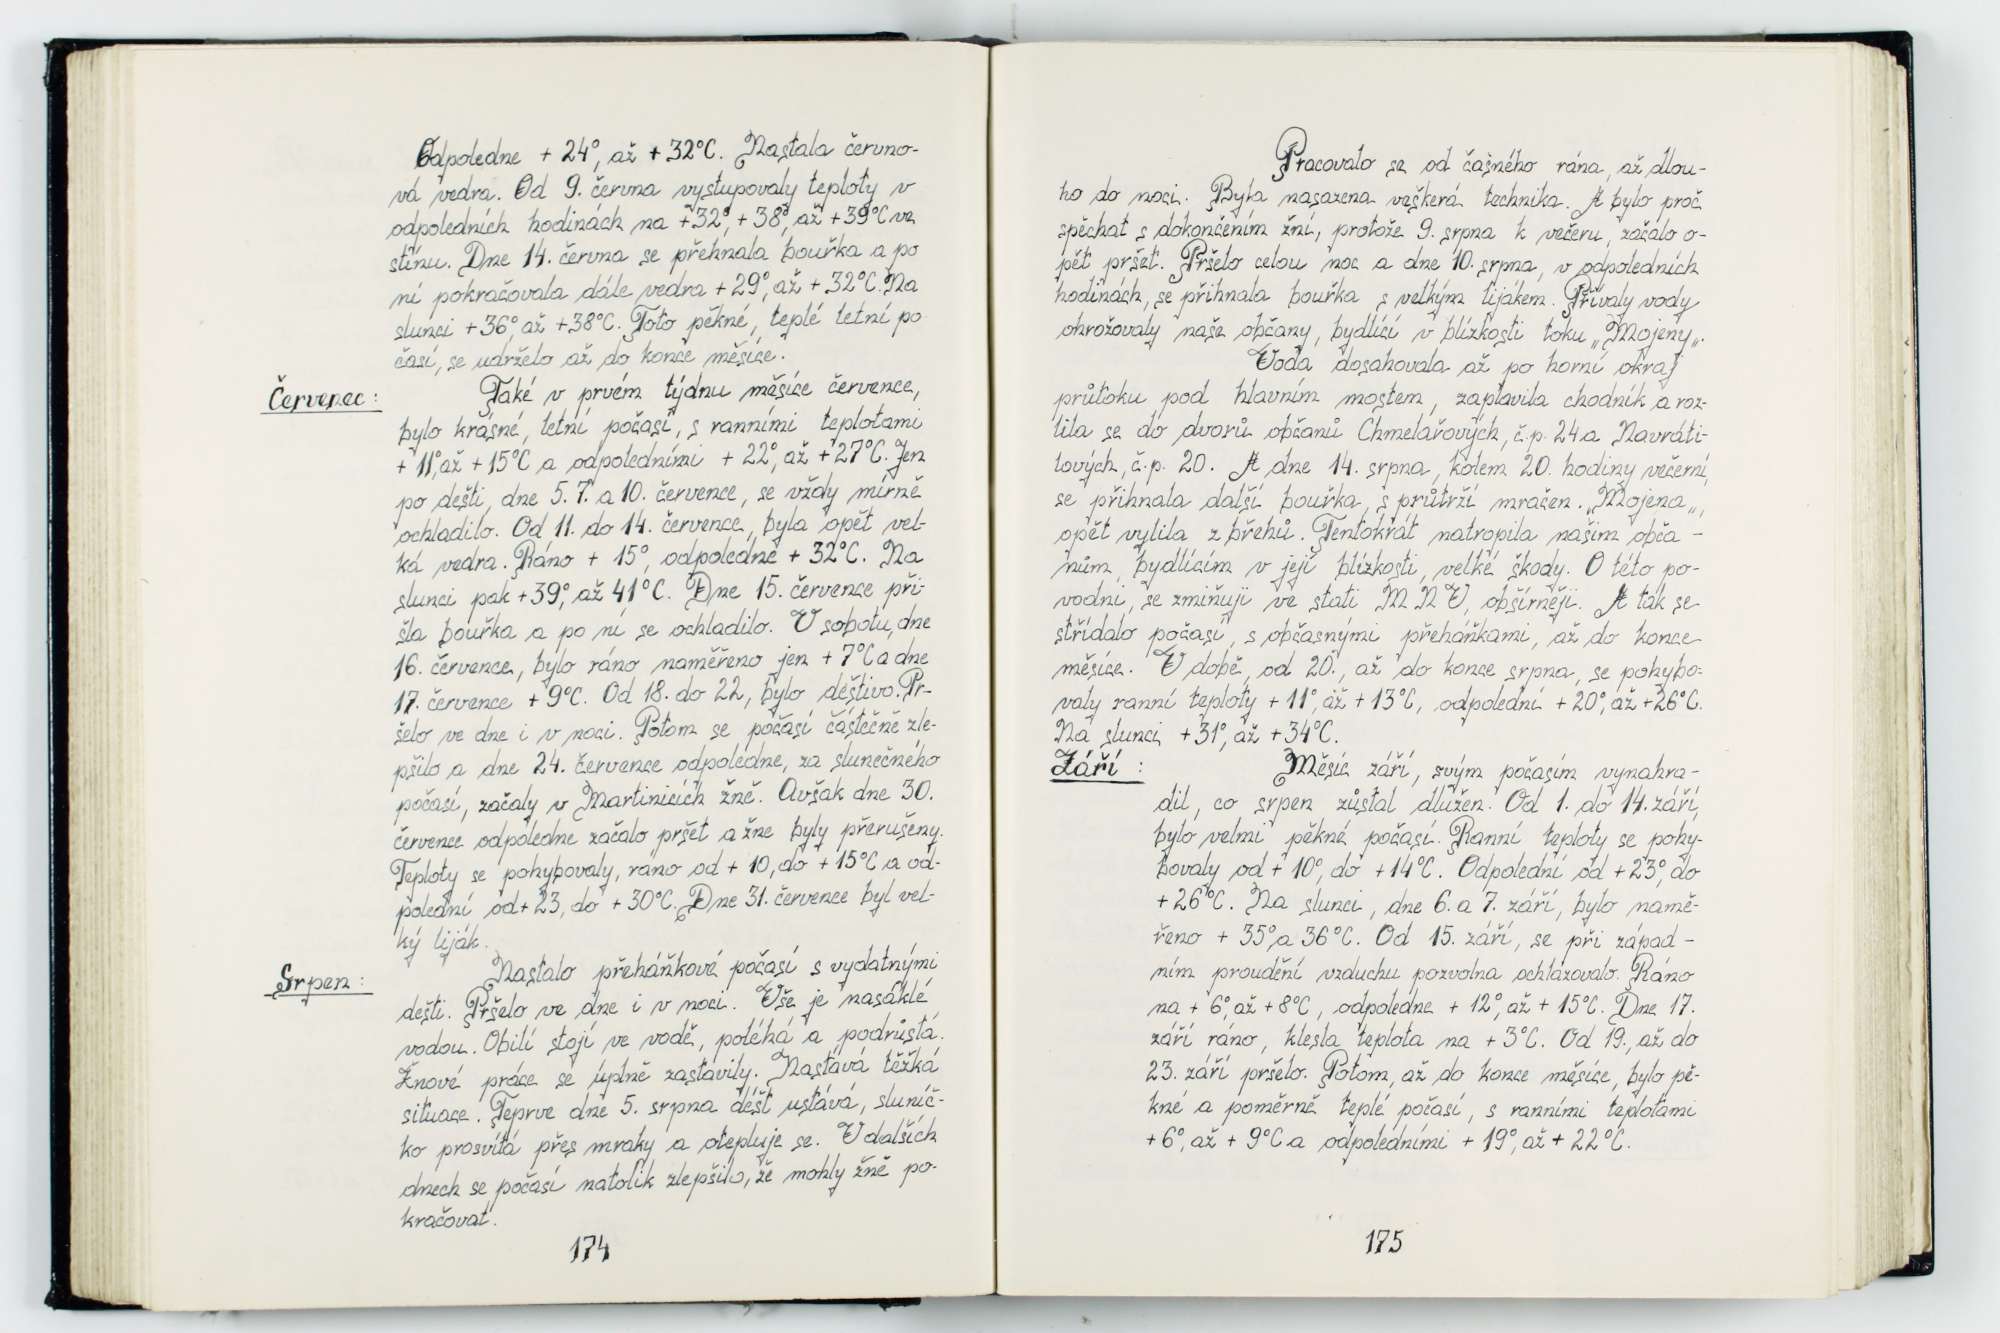 Odpoledne + 24°, až + 32°C. Nastala červno-
vá vedra. Od 9. června vystupovaly teploty v
odpoledních hodinách na +32°, +38°, až +39°C ve
stínu. Dne 14. června se přehnala bouřka a po
ní pokračovala dále vedra + 29°, až + 32°C. Na
slunci + 36°, až +38°C. Toto pěkné, teplé letní po-
časí, se udrželo až do konce měsíce.
Červenec:
Také v prvém týdnu měsíce července,
bylo krásné, letní počasí, s ranními teplotami
+ 11°, až + 15°C a odpoledními + 22°, až + 27°C. Jen
po dešti, dne 5. 7. a 10. července, se vždy mírně
ochladilo. Od 11. do 14. července, byla opět vel-
ká vedra. Ráno + 15°, odpoledne + 32°C. Na
slunci pak +39°, až 41°C. Dne 15. července při-
šla bouřka a po ní se ochladilo. V sobotu, dne
16. července, bylo ráno naměřeno jen + 7°C a dne
17. července + 9°C. Od 18. do 22, bylo deštivo. Pr-
šelo ve dne i v noci. Potom se počasí částečně zle-
pšilo a dne 24. července odpoledne, za slunečného
počasí, začaly v Martinicích žně. Avšak dne 30.
července odpoledne začalo pršet a žne byly přerušeny.
Teploty se pohybovaly, ráno od + 10, do + 15°C a od-
polední od + 23, do + 30°C. Dne 31. července byl vel-
ký liják.
Srpen:
Nastalo přeháňkové počasí s vydatnými
dešti. Pršelo ve dne i v noci. Vše je nasáklé
vodou. Obilí stojí ve vodě, poléhá a podrůstá.
Žnové práce se úplně zastavily. Nastává těžká
situace. Teprve dne 5. srpna déšť ustává, sluníč-
ko prosvítá přes mraky a otepluje se. V dalších
dnech se počasí natolik zlepšilo, že mohly žně po-
kračovat.
174
Pracovalo se od časného rána, až dlou-
ho do noci. Byla nasazena veškerá technika. A bylo proč
spěchat s dokončením žní, protože 9. srpna k večeru, začalo o-
pět pršet. Pršelo celou noc a dne 10. srpna, v odpoledních
hodinách, se přihnala bouřka s velkým lijákem. Přívaly vody
ohrožovaly naše občany, bydlící v blízkosti toku „Mojeny„.
Voda dosahovala až po horní okraj
průtoku pod hlavním mostem, zaplavila chodník a roz-
lila se do dvorů občanů Chmelařových, č.p. 24 a Navráti-
lových, č.p. 20. A dne 14. srpna, kolem 20. hodiny večerní,
se přihnala další bouřka, s průtrží mračen. „Mojena„,
opět vylila z břehů. Tentokrát natropila našim obča-
nům, bydlícím v její blízkosti, velké škody. O této po-
vodni, se zmiňuji ve stati MNV, obšírněji. A tak se
střídalo počasí, s občasnými přeháňkami, až do konce
měsíce. V době, od 20., až do konce srpna, se pohybo-
valy ranní teploty + 11°, až + 13°C, odpolední + 20°, až +26°C.
Na slunci + 31°, až + 34°C.
Září:
Měsíc září, svým počasím vynahra-
dil, co srpen zůstal dlužen. Od 1. do 14. září,
bylo velmi pěkné počasí. Ranní teploty se pohy-
bovaly od + 10°, do + 14°C. Odpolední od + 23°, do
+ 26°C. Na slunci, dne 6. a 7. září, bylo namě-
řeno + 35°, a 36°C. Od 15. září, se při západ-
ním proudění vzduchu pozvolna ochlazovalo. Ráno
na + 6°, až + 8°C, odpoledne + 12°, až + 15°C. Dne 17.
září ráno, klesla teplota na + 3°C. Od 19., až do
23. září pršelo. Potom, až do konce měsíce, bylo pě-
kné a poměrně teplé počasí, s ranními teplotami
+ 6°, až + 9°C a odpoledními + 19°, až + 22°C.
175